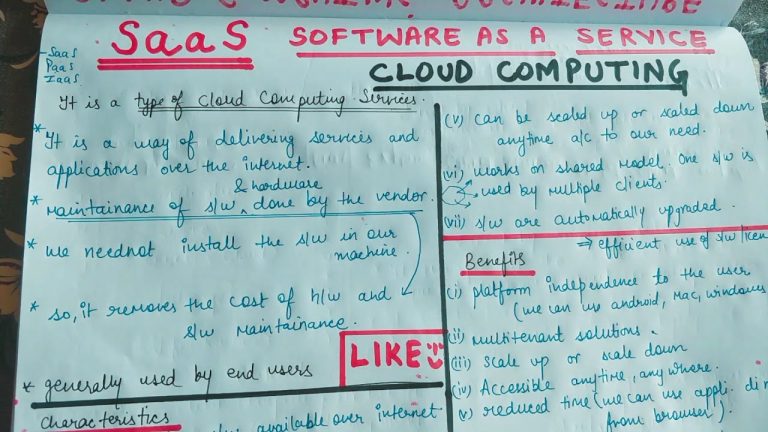 SaaS SOFTWARE AS A SERVICE
CLOUD COMPUTING
- SaaS
PaaS
IaaS
It is a type of Cloud Computing Services.
* It is a way of delivering services and
applications over the internet.
& hardware
* Maintainance of s/w ^ done by the vendor.
* We neednot install the s/w in our
machine.
* so, it removes the cost of h/w and
s/w Maintainance.
LIKE
* generally used by end users
Characteristics
available over internet
(v) Can be scaled up or scaled down
anytime a/c to our need.
(vi) Works on shared Model. One s/w is
used by Multiple Clients.
(vii) s/w are automatically upgraded.
⇒ efficient use of s/w
Benefits
(i) platform independence to the user
(we can use android, Mac, windows
(ii) Multitenant solutions.
(iii) Scale up or scale down
(iv) Accessible anytime, anywhere.
(v) reduced time (we can use appli.
from browser).